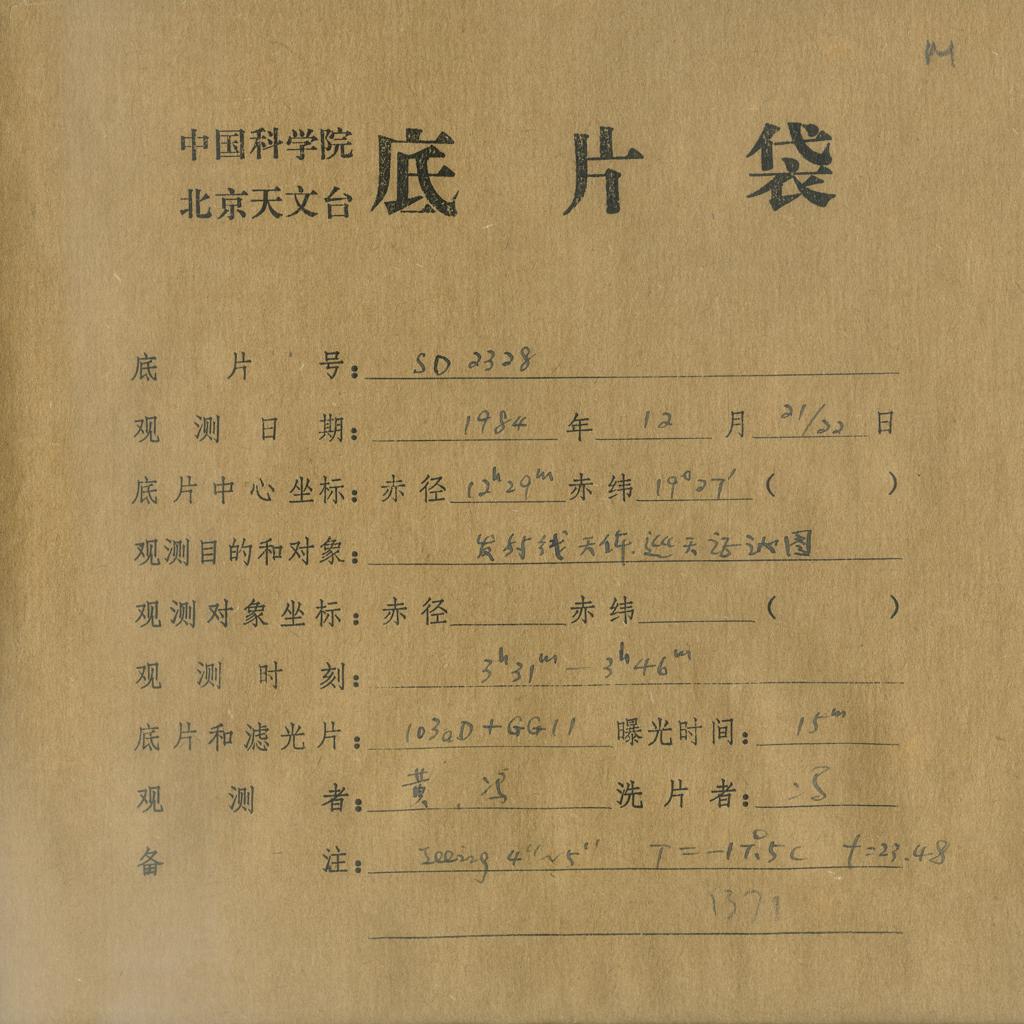 中国科学院
北京天文台
底片袋
底片号: SD 2328
观测日期: 1984 年 12 月 21/22 日
底片中心坐标: 赤径 12ʰ29ᵐ 赤纬 19°27′ ( )
观测目的和对象: 发射线天体.巡天证认图
观测对象坐标: 赤径 赤纬 ( )
观测时刻: 3ʰ31ᵐ — 3ʰ46ᵐ
底片和滤光片: 103aD + GG11 曝光时间: 15ᵐ
观测者: 黄.冯 洗片者: 冯
备注: Seeing 4″~5″ t=23.48
1371